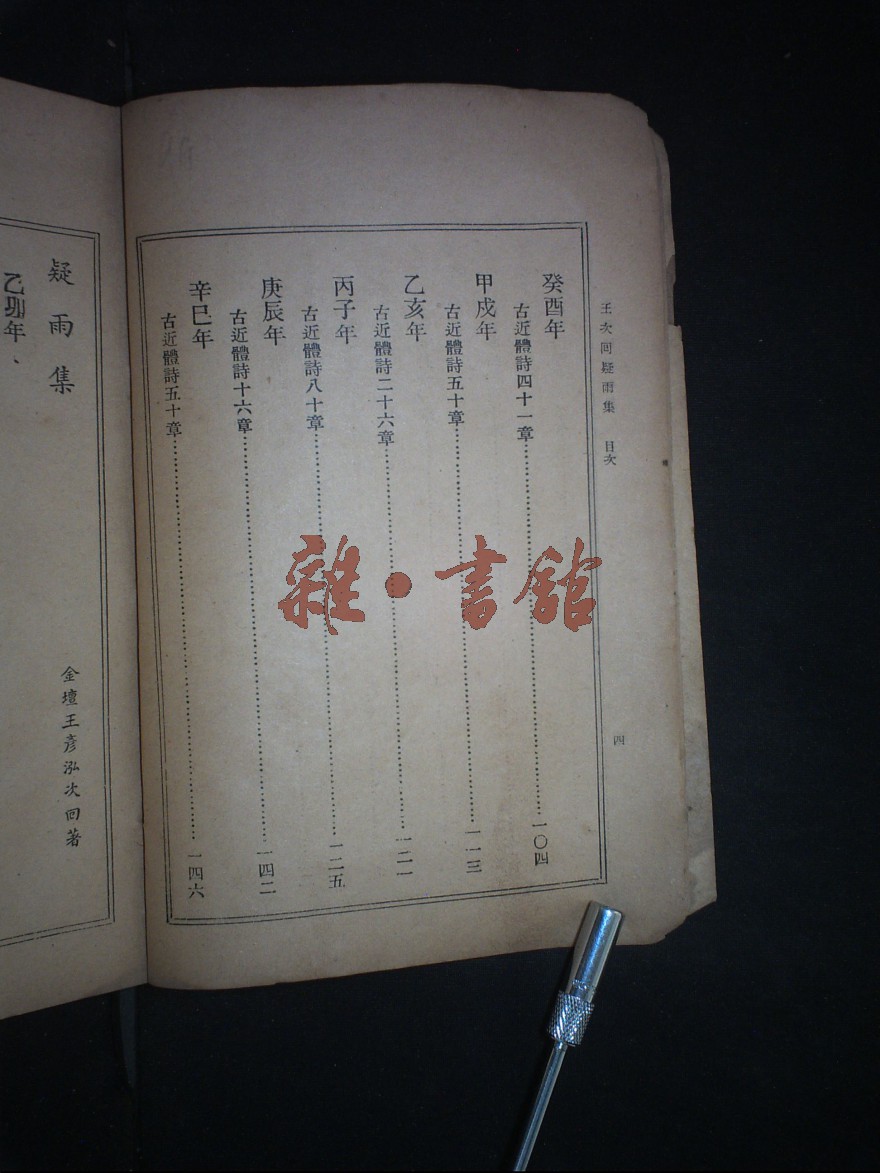 王次回疑雨集 目次
四
癸酉年
古近體詩四十一章……一〇四
甲戌年
古近體詩五十章……一一三
乙亥年
古近體詩二十六章……一二一
丙子年
古近體詩八十章……一二五
庚辰年
古近體詩十六章……一四二
辛巳年
古近體詩五十章……一四六
疑雨集
金壇王彥泓次回著
乙卯年
雜·書館